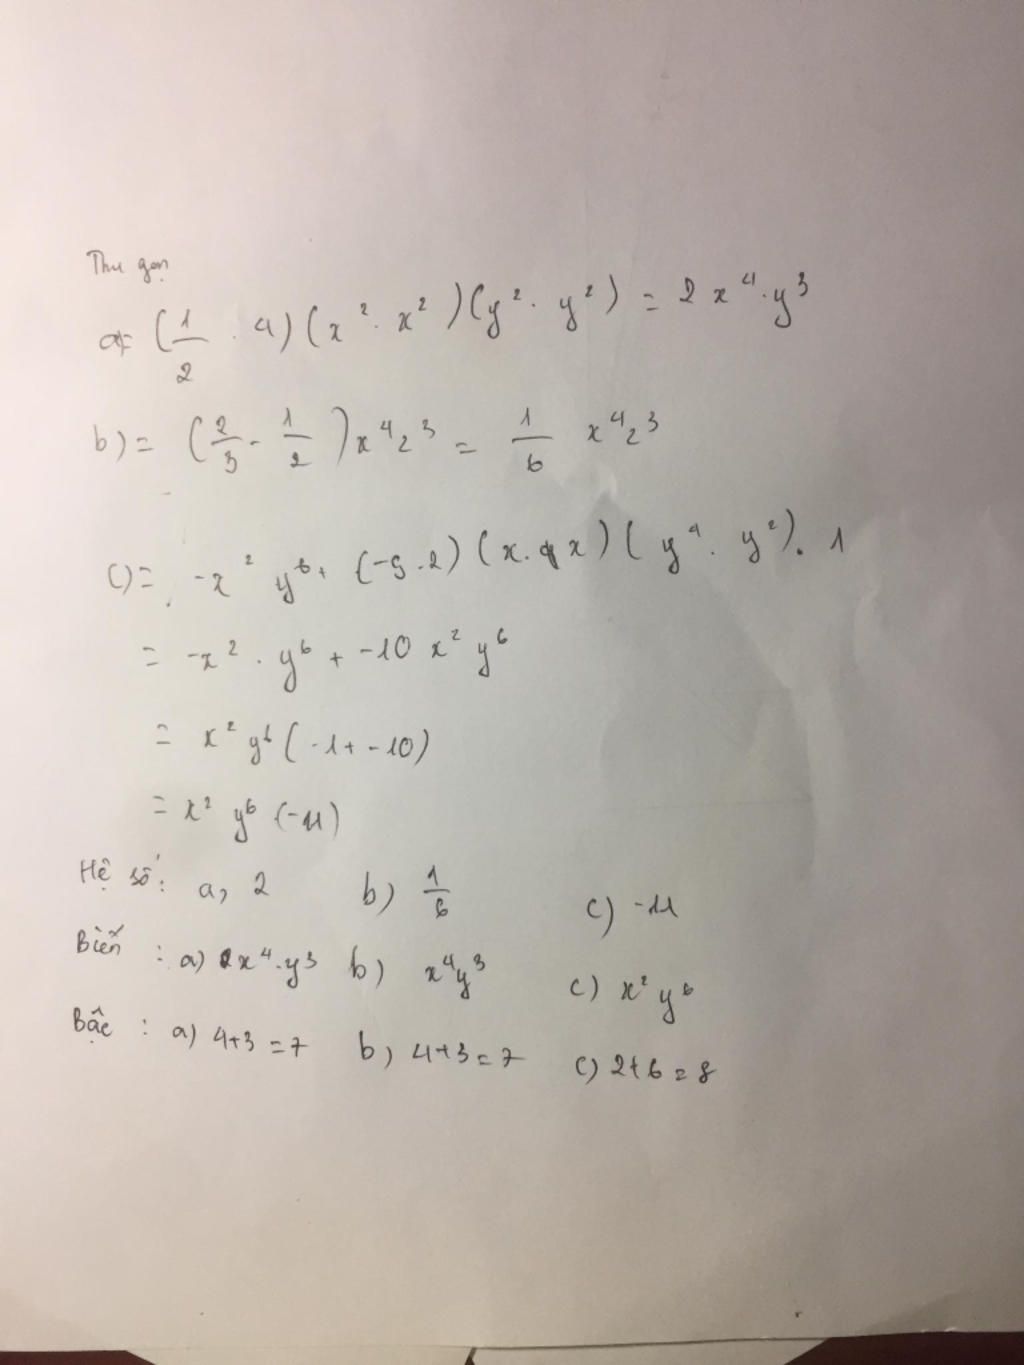 Thu gọn
a) = (1/2 . 4) (x² . x²) (y² . y²) = 2x⁴.y³
b) = (2/3 - 1/2) x⁴z³ = 1/6 x⁴z³
c) = -x² y⁶ + (-5.2) (x.x) (y⁴ . y²). 1
= -x² . y⁶ + -10 x² y⁶
= x² y⁶ (-1+ -10)
= x² y⁶ (-11)
Hệ số: a, 2 b) 1/6 c) -11
Biến : a) x⁴.y³ b) x⁴y³ c) x² y⁶
Bậc : a) 4+3 = 7 b) 4+3 = 7 c) 2+6 = 8